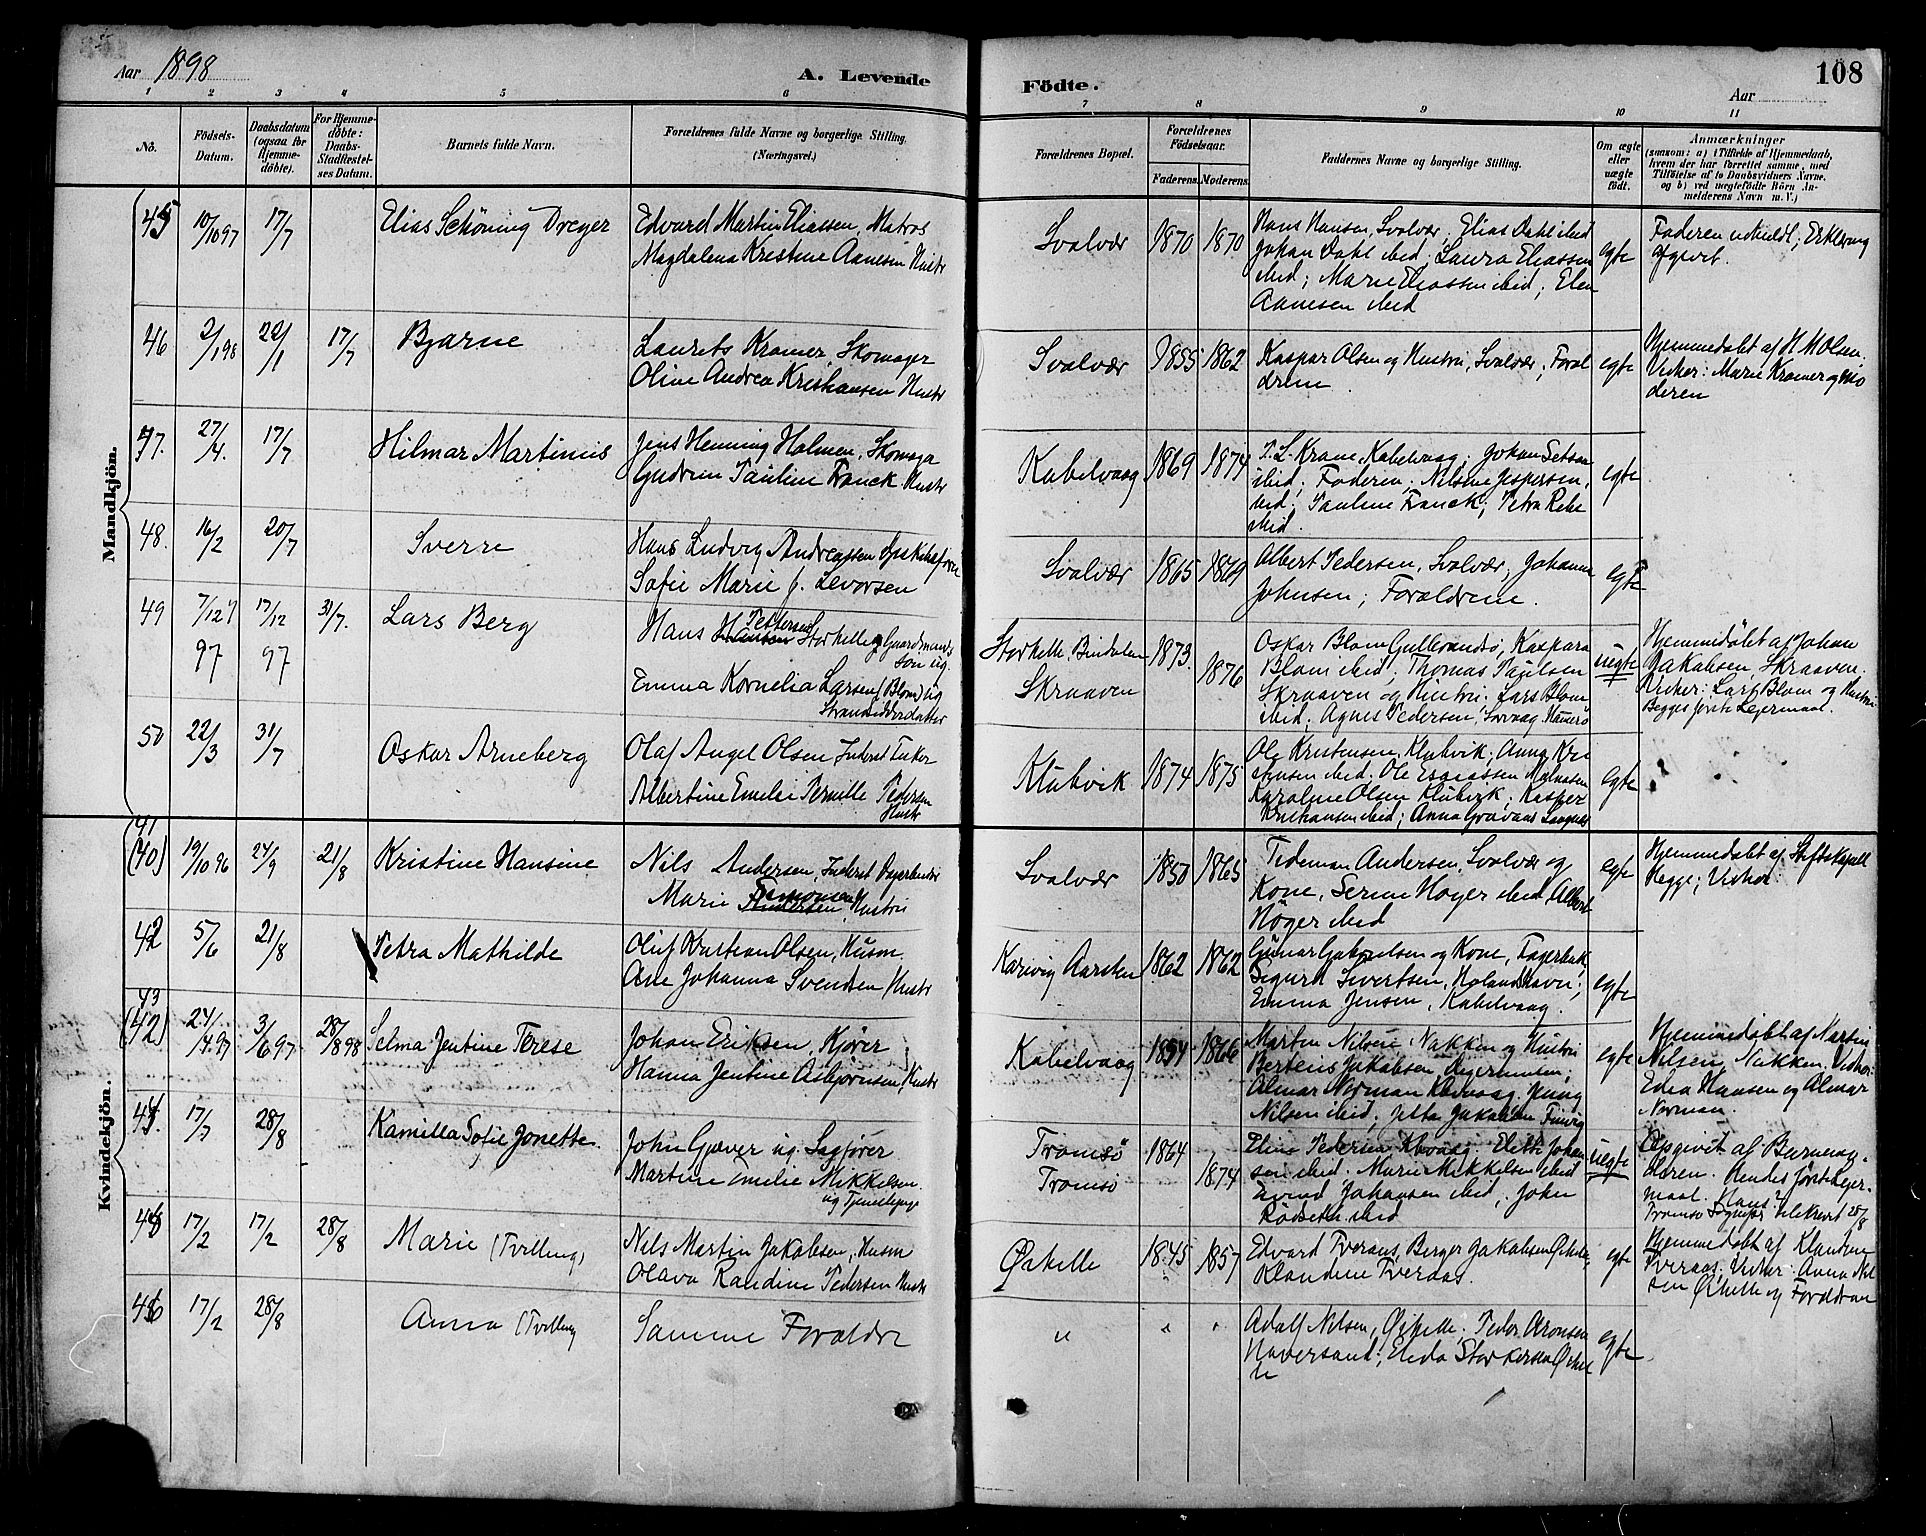 Aar 1898
A. Levende
Födte.
108
Aar
1 2 3 4 5 6 7 8 9 10 11
No.
Födsels-
Datum.
Daabsdatum
(ogsaa for
Hjemme-
döbte).
For Hjemme-
døbte:
Daabs-
Stadfæstel-
ses Datum.
Barnets fulde Navn.
Forældrenes fulde Navne og borgerlige Stilling.
(Næringsvei.)
Forældrenes Bopæl.
Forældrenes
Födselsaar.
Faderens. Moderens.
Faddernes Navne og borgerlige Stilling.
Om ægte
eller
uægte
født.
Anmærkninger
(saasom: a) i Tilfælde af Hjemmedaab,
hvem der har forrettet samme, med
Tilföielse af to Daabsvidners Navne,
og b) ved uægtefödte Börn An-
melderens Navn m. V.)
Mandkjön.
45 10/10 97 17/7 Elias Schöning Dreyer
Edvard Martin Eliassen, Matros
Magdalena Kristine Aanesen Hustr
Svolvær 1870 1870
Hans Hansen, Svolvær; Elias Dahl ibid
Johan Dahl ibid; Laura Eliassen
ibid; Marie Eliassen ibid; Elen
Aanesen ibid
egte
Faderen udmeldt; Erklæring
afgivet.
46 2/1 98 22/1 17/7 Bjarne
Laurits Kramer, Skomager
Oline Andrea Kristiansen Hustr
Svolvær 1855 1862
Kaspar Olsen og Hustru, Svolvær; Foræl
drene
egte
Hjemmedøbt af H M Olsen.
Vidner: Marie Kramer og Mo
deren
47. 27/4. 17/7 Hilmar Martinius
Jens Henning Holmen, Skomager
Gudrun Pauline Franck Hustr
Kabelvaag 1869 1874
T. L. Krane, Kabelvaag; Johan Setsaa
ibid; Faderen; Nilsine Jespersen,
ibid; Pauline Franck; Petra Rebe
ibid.
egte
48. 16/2 20/7 Sverre
Hans Ludvig Andreassen
Sofie Marie f. Levorsen
Svolvær 1865 1869
Albert Pedersen, Svolvær; Johanna
Johnsen; Forældrene.
egte
49 7/12 17/12 31/7. Lars Berg
97 97
Hans Pettersen Storhelle, Gaardmands
søn ug.
Emma Kornelia Larsen (Blom) ug
Strandsidderdatter
Storhelle, Bindalen 1873.
Skraaven 1876
Oskar Blom Gulbrandsø, Kaspara
Blom ibid; Thomas Paulsen
Skraaven og Hustru; Lars Blom
ibid; Agnes Pedersen,
uegte
Hjemmedøbt af Johan
Jakobsen, Skraaven.
Vidner: Lars Blom og Hustru
Begges første Lejermaal.
50 22/3 31/7 Oskar Arneberg
Olaf Angel Olsen, Inderst Fisker
Albertine Emelie Pernille Pedersen
Hustr
Klubvik 1874 1875
Ole Kristensen, Klubvik; Anna Kri
stensen ibid; Ole Esaiassen
Karoline Olsen Klubvik; Kasper
Kristiansen ibid; Anna
egte
Kvindekjön.
41
(40) 19/10 96 24/9 21/8 Kristine Hansine
Nils Andersen, Inderst
Marie Simonsen, Hustru
Svolvær 1850 1865
Tideman Andersen, Svolvær og
Kone, Serine Höyer ibid, Albert
Höger ibid
egte
Hjemmedøbt af Stiftskapell
Hegge; Vidner:
42 5/6 21/8 Petra Mathilde
Oluf Kristian Olsen, Husm.
Ane Johanna Svendsen Hustr
Karivig Aarsten 1862 1862
Gunar Gabrielsen og Kone, Fagerbak,
Sigurd Sivertsen, Holandshavn;
Emma Jensen, Kabelvaag.
egte
43
(42) 24/4 97 3/6 97 28/8 98 Selma Jentine Terese
Johan Eriksen, Kjører
Hanna Jentine Asbjørnsen, Hustr
Kabelvaag 1854 1866
Martin Nilsen, Nakken og Hustru
Bertine Jakobsen,
Almar Norman Kbvaag.
Nilsen ibid; Jetta Jakobsen
egte
Hjemmedøbt af Martin
Nilsen, Nakken. Vidner:
Edea Hansen og Almar
Norman.
44. 17/7 28/8 Kamilla Sofie Jonette
John Gjæver ug. Sagfører
Martine Emilie Mikkelsen
ug Tjenestepige
Tromsö 1864
Tromsö 1874
Elina Pedersen Kbvaag. Elette Johan
sen ibid. Marie Mikkelsen ibid
Eivind Johansen ibid; John
Rödseth ibid
uegte
Opgivet af Barnemo-
deren. Hendes første Lejer-
maal.
45 17/2 17/2 28/8 Marie (Tvilling)
Nils Martin Jakobsen, Husm
Olava Randine Pedersen Hustr
Ørhelle 1845 1857
Edvard Tveraas, Berger Jakobsen Ørhelle,
Klaudine Tveraas.
egte
Hjemmedøbt af Klaudine
Tveraas; Vidner: Anna Nil
sen Ørhelle og Forældrene
46 17/2 28/8 Anna (Tvilling
Samme Forældre
" " "
Adolf Nilsen, Ørhelle; Peder Aronsen
Haversand; Elida Storkersen Ørhel
le
egte.